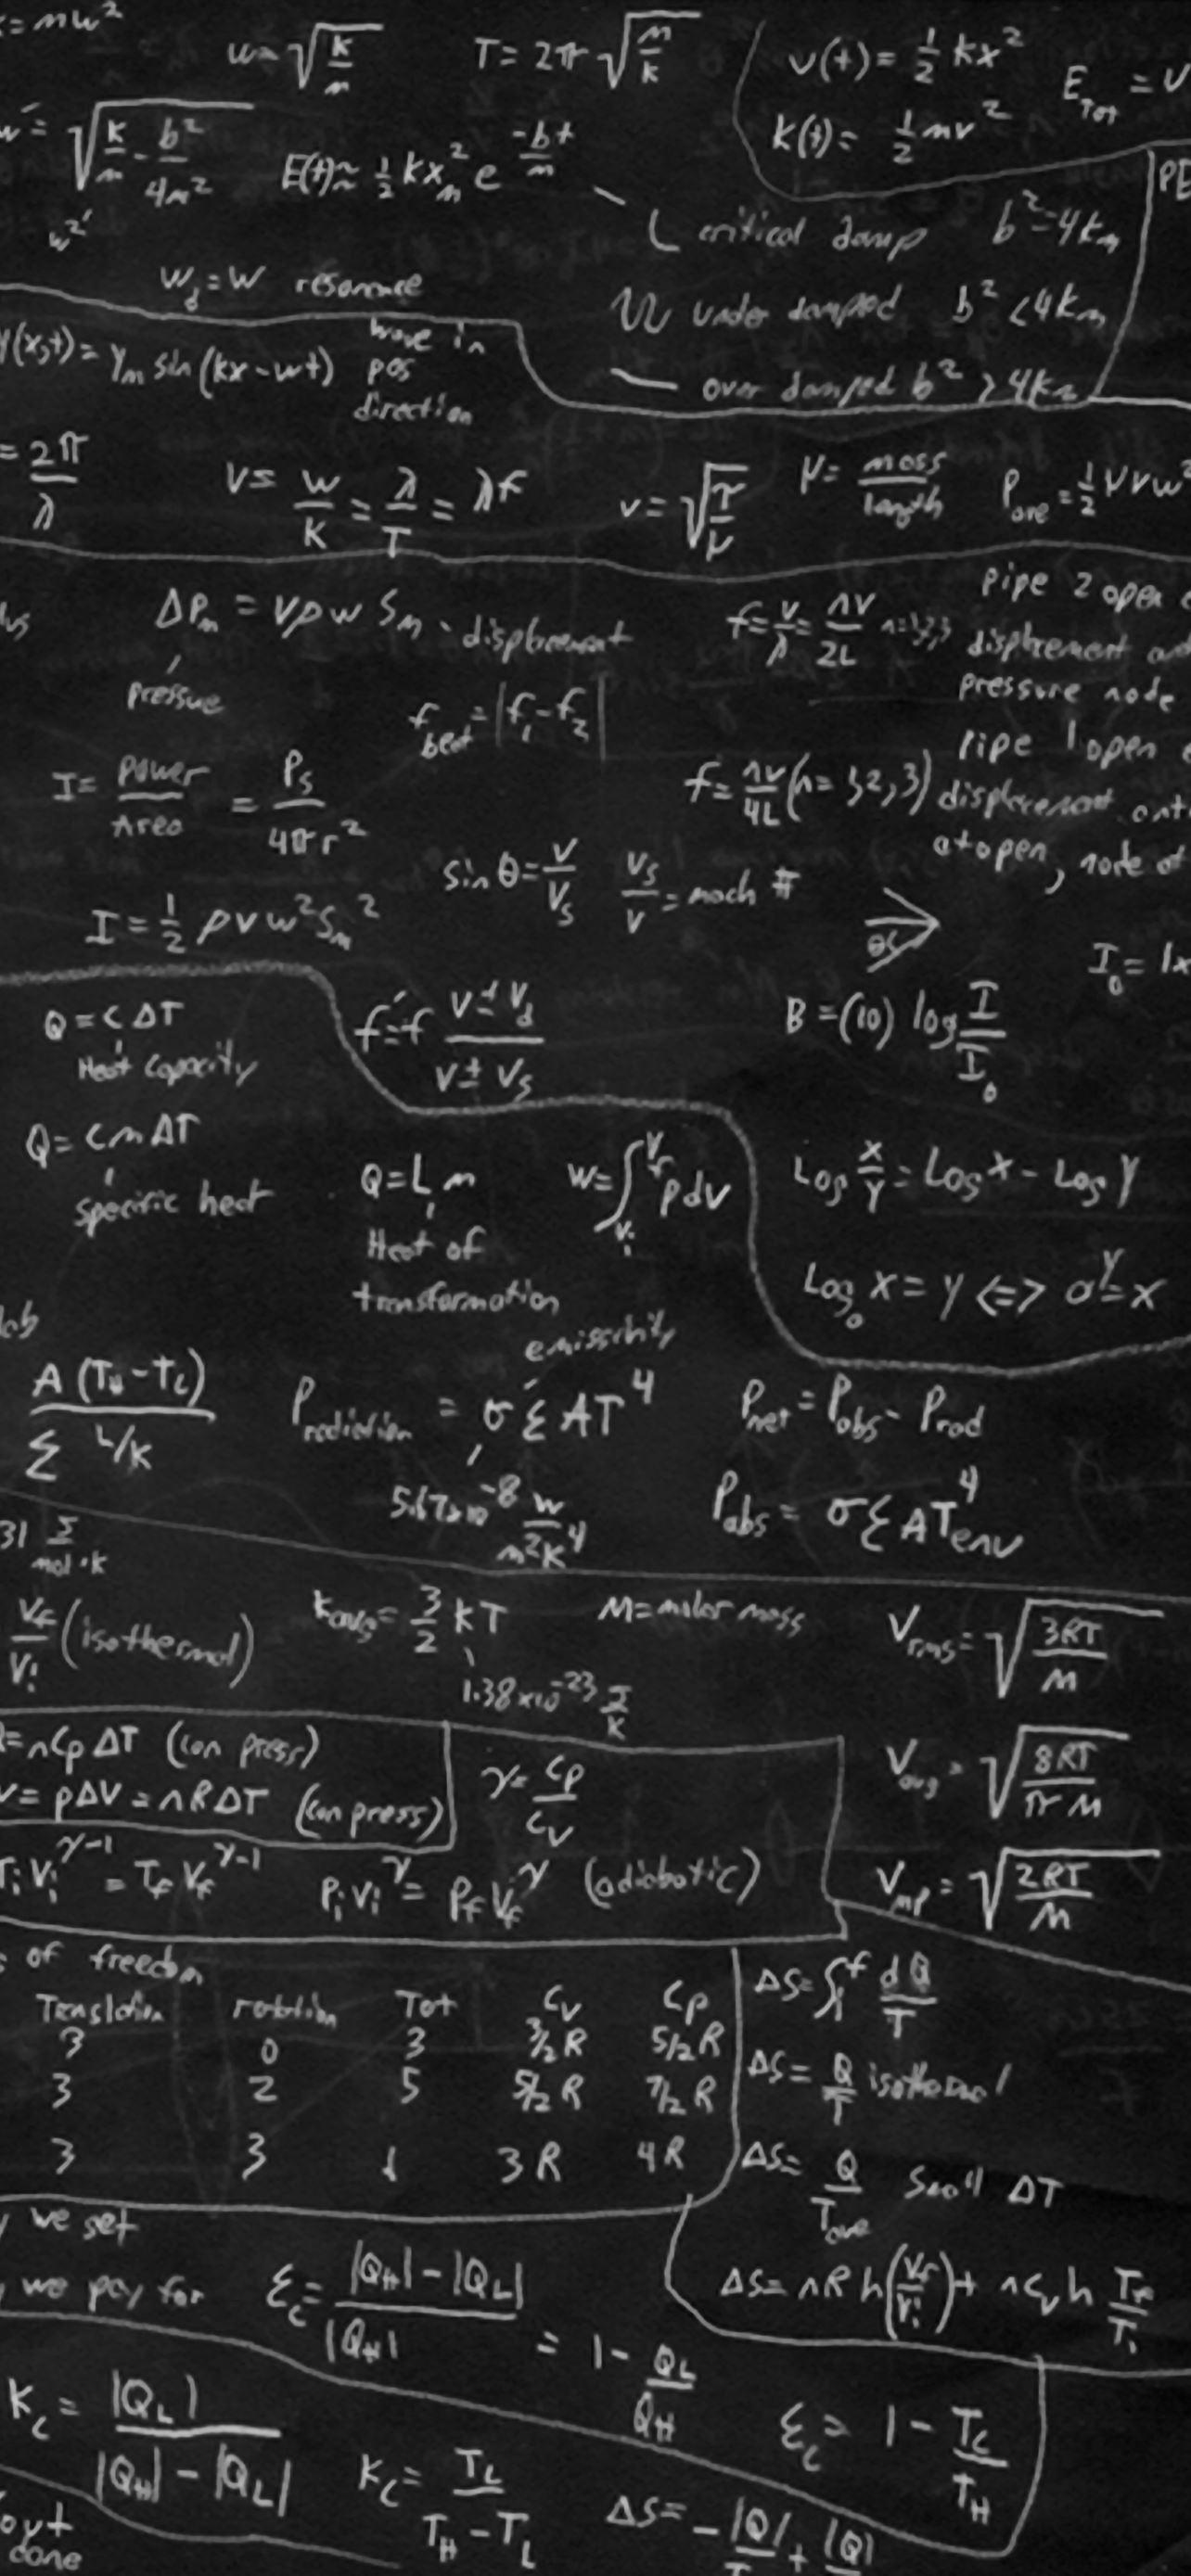 k = mω²
ω = √(k/m)
T = 2π √(m/k)
v(t) = ½ kx²
E_Tot = U
k(t) = ½ mv²
ω' = √(k/m - b²/4m²)
E(t) ≈ ½ kx_m² e^(-bt/m)
ω²'
critical damp b² = 4km
PE
ω_d = ω resonance
under damped b² < 4km
y(x,t) = y_m sin(kx - ωt) wave in
pos
direction
over damped b² > 4km
= 2π/λ
v = ω/k = λ/T = λf
v = √(τ/μ)
μ = mass/length
P_ave = ½ μvω²
ΔP_m = vρω S_m - displacement
pressue
f_beat = |f₁ - f₂|
f = v/λ = nv/2L n=1,2,3
pipe 2 open
displacement
pressure node
pipe 1 open
I = power/Area = P_s/4πr²
f = nv/4L (n = 1,2,3)
displacement
at open, node at
sin θ = v/v_s v_s/v = mach #
I = ½ ρvω²S_m²
θ
I₀ = 1x
Q = C ΔT
Heat capacity
f' = f (v ± v_d)/(v ± v_s)
B = (10) log I/I₀
Q = cmΔT
specific heat
Q = Lm
Heat of
transformation
W = ∫_{Vi}^{Vf} p dV
Log x/y = Log x - Log y
Log_a x = y <=> a^y = x
A (T_H - T_L)/Σ L/k
emissivity
P_radiation = σ ε AT⁴
5.67x10⁻⁸ W/m²K⁴
P_net = P_abs - P_rad
P_abs = σ ε AT_env⁴
31 J/mol·K
Vf/Vi (isothermal)
k_avg = 3/2 kT
1.38x10⁻²³ J/K
M = molar mass
V_rms = √(3RT/M)
Q = nCpΔT (con press)
W = pΔV = nRΔT (con press)
γ = Cp/Cv
V_avg = √(8RT/πM)
TiVi^(γ-1) = TfVf^(γ-1)
PiVi^γ = PfVf^γ (adiabatic)
V_mp = √(2RT/M)
of freedom
Translation rotation Tot Cv Cp
3 0 3 3/2 R 5/2 R
3 2 5 5/2 R 7/2 R
3 3 6 3R 4R
ΔS = ∫_i^f dQ/T
ΔS = Q/T isothermal
ΔS = Q/T_ave small ΔT
ΔS = nR ln(Vf/Vi) + nCv ln Tf/Ti
we get
we pay for
ε_c = (|Q_H| - |Q_L|)/|Q_H| = 1 - Q_L/Q_H
ε_c = 1 - T_C/T_H
K_c = |Q_L|/(|Q_H| - |Q_L|)
K_c = T_L/(T_H - T_L)
ΔS = -|Q|/T + |Q|
out
done